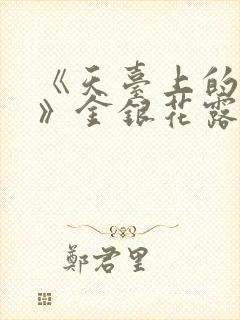 《天臺上的
》金銀花露
鄭君里